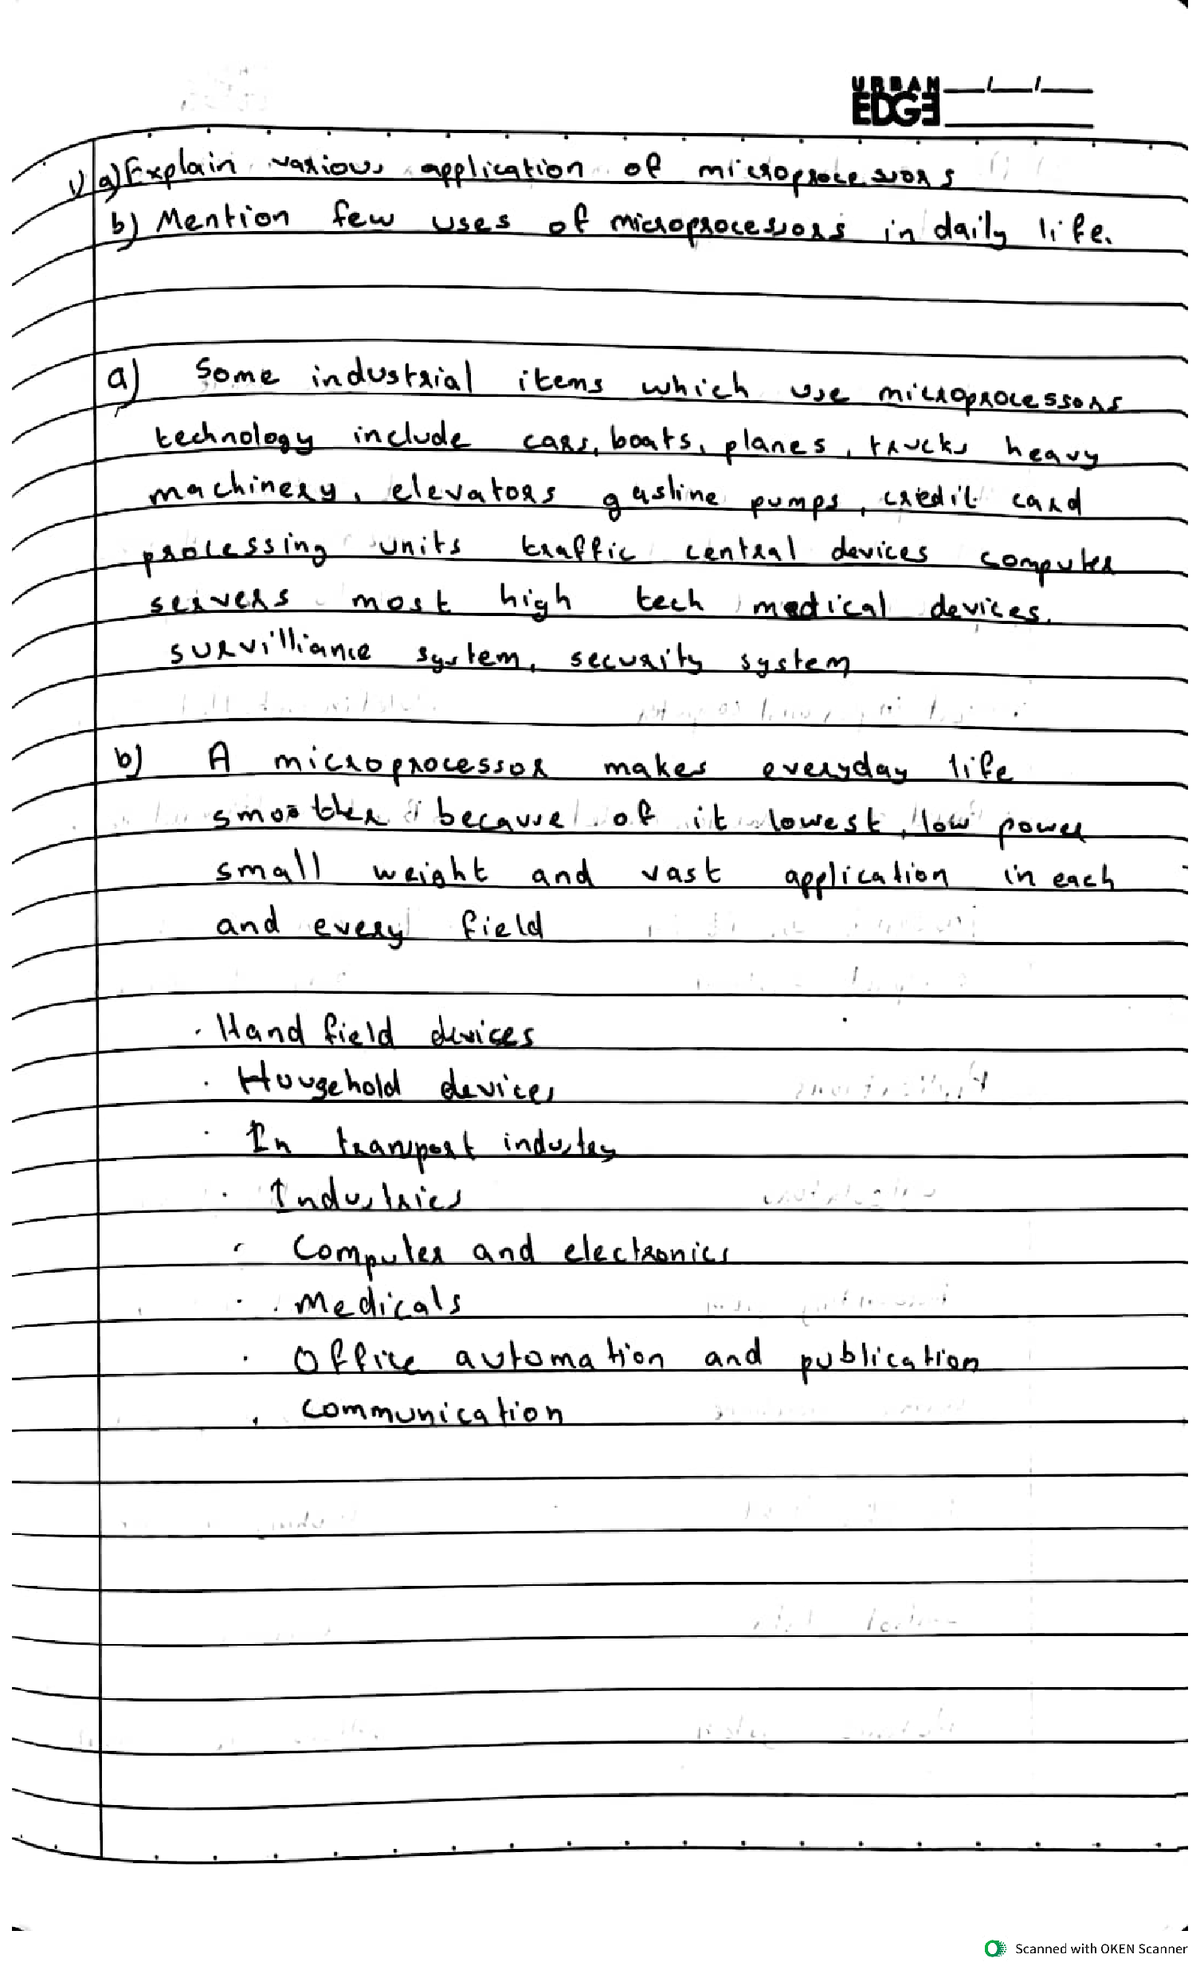 URBAN
EDGE
1) a) Explain various application of microprocessors
b) Mention few uses of microprocessors in daily life.
a) Some industrial items which use microprocessors
technology include cars, boats, planes, trucks heavy
machinery, elevators gasline pumps, credit card
processing units traffic central devices computer
servers most high tech medical devices.
survilliance system, security system
b) A microprocessor makes everyday life
smoother because of it lowest, low power
small weight and vast application in each
and every field
· Hand field devices
· Household devices
· In transport industry
· Industries
· Computer and electronics
· Medicals
· Office automation and publication
. communication
Scanned with OKEN Scanner